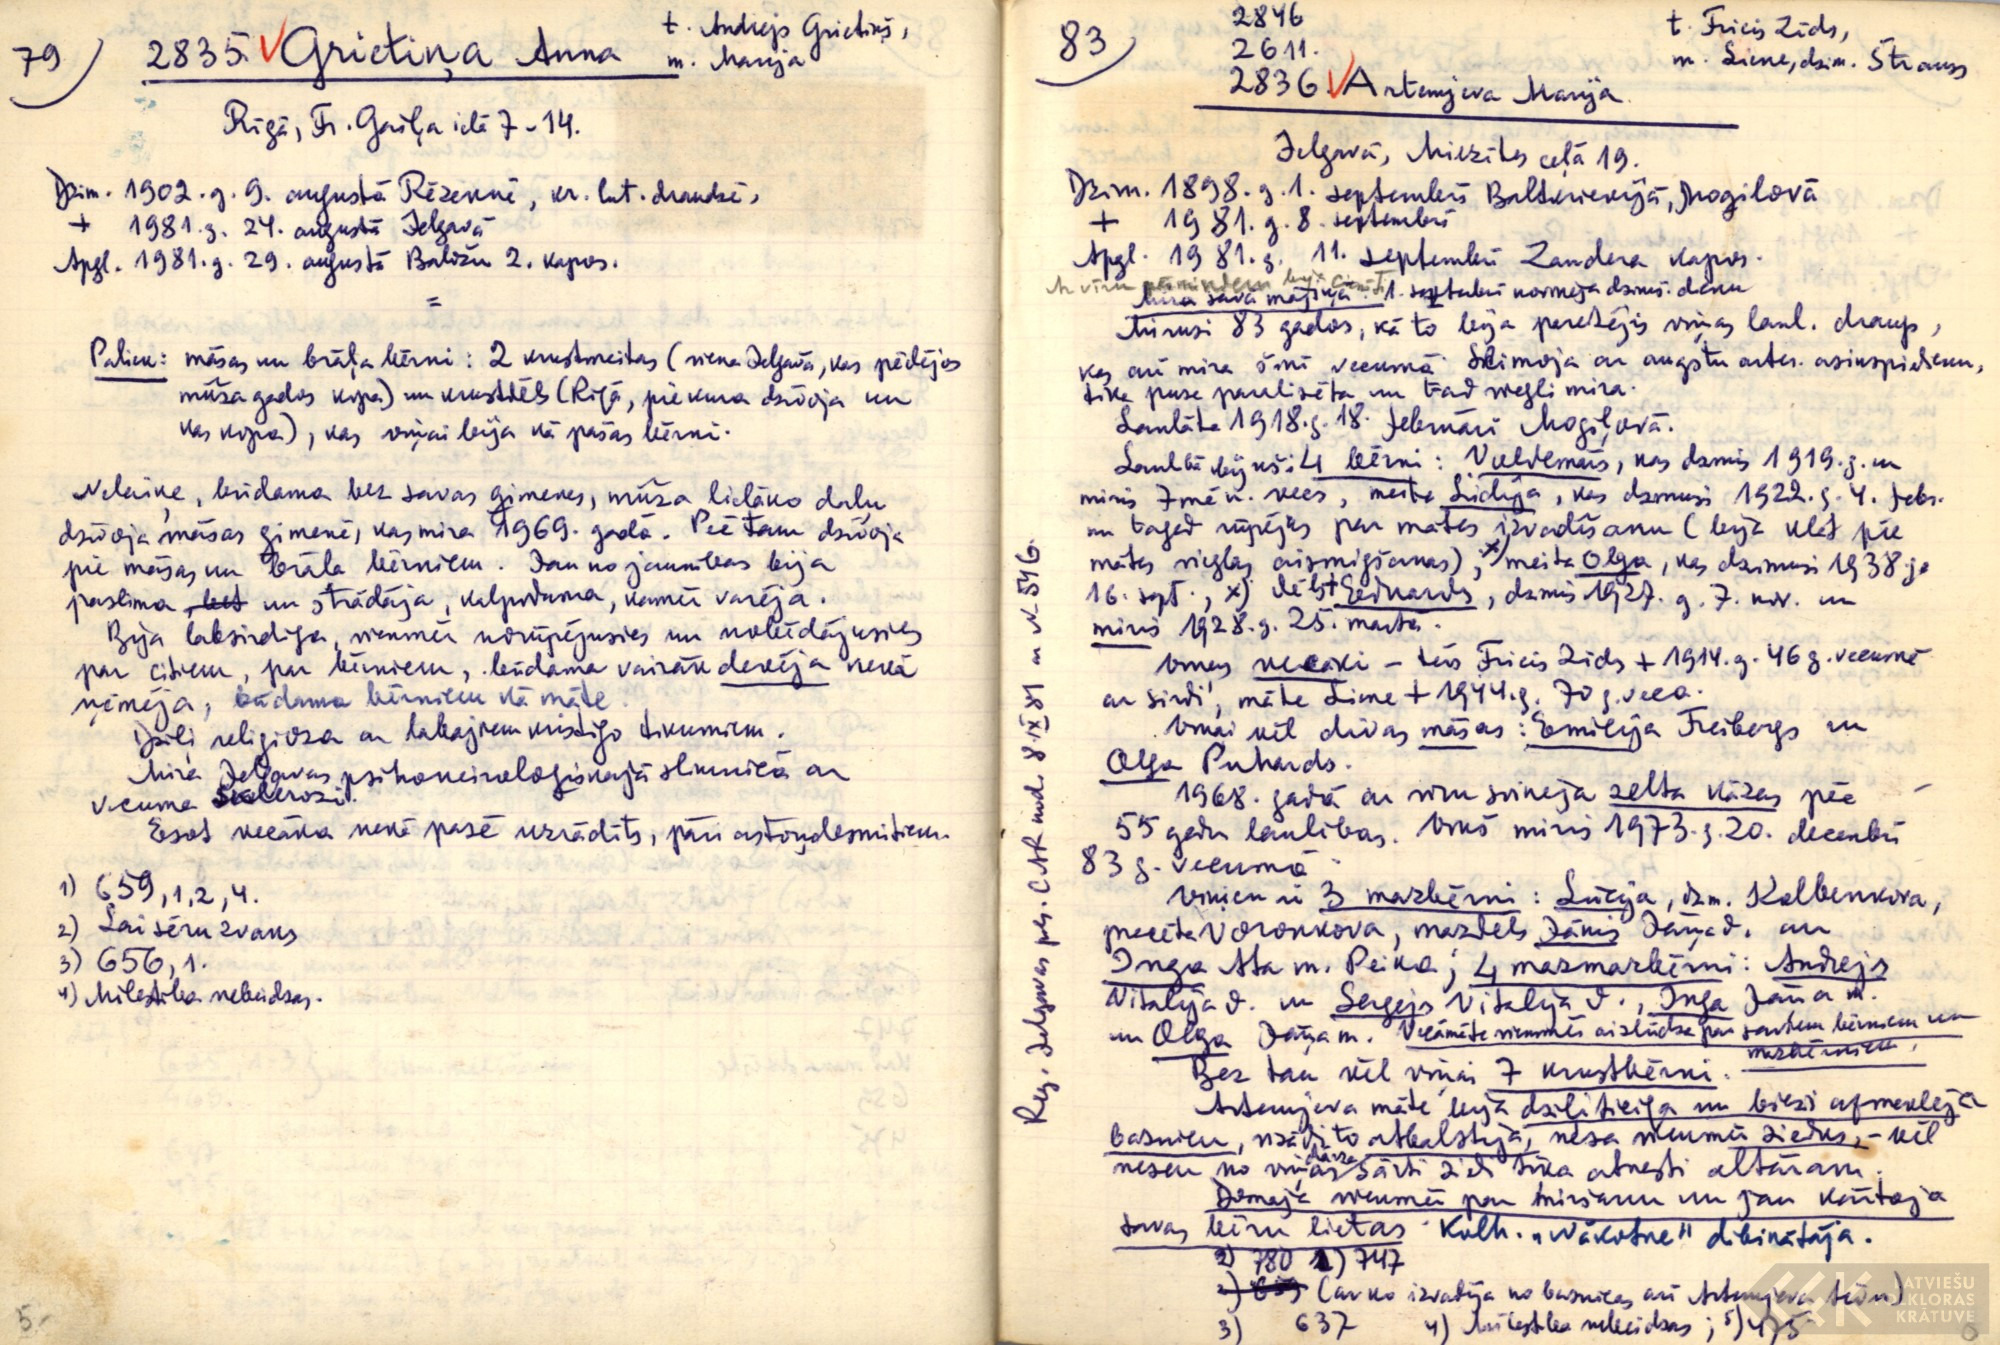 79)
2835. Grietiņa Anna
t. Andrejs Grietiņš,
m. Marija
Rīgā, Fr. Gaiļa ielā 7-14.
Dzim. 1902. g. 9. augustā Rēzeknē, kr. lut. draudzē,
+ 1981. g. 24. augustā Jelgavā
Apgl. 1981. g. 29. augustā Baložu 2. kapos.
=
Paliek: māsas un brāļa bērni: 2 krustmeitas (viena Jelgavā, kas pēdējos
mūža gados kopa) un krustdēls (Rīgā, pie kura dzīvoja un
kas kopa), kas viņai bija kā pašas bērni.
Nelaiķe, būdama bez savas ģimenes, mūža lielāko daļu
dzīvoja māsas ģimenē, kas mira 1969. gadā. Pēc tam dzīvoja
pie māsas un brāļa bērniem. Jau no jaunības bija
paslima, bet un strādāja, kalpodama, kamēr varēja.
Bija labsirdīga, vienmēr norūpējusies un nobēdājusies
par citiem, par bērniem, būdama vairāk devēja nekā
ņēmēja, būdama bērniem kā māte.
Dziļi religioza ar labajiem kristīgo tikumiem.
Mira Jelgavas psihoneiroloģiskajā slimnīcā ar
vecuma sklerozi.
Esot vecāka nekā pasē uzrādīts, pāri astoņdesmitiem.
1) 659, 1, 2, 4.
2) Lai sēru zvans
3) 656, 1.
4) Mīlestība nebeidzas.
5.
83)
2846
2611.
2836 Artemjeva Marija
t. Fricis Zīds,
m. Liene, dzim. Štrauss
Jelgavā, Miezītes ceļā 19.
Dzim. 1898. g. 1. septembrī Baltkrievijā, Mogiļovā
+ 1981. g. 8. septembrī
Apgl. 1981. g. 11. septembrī Zandera kapos.
Mira savā mājiņā. 1. septembrī nosvinēja dzimš. dienu
Mirusi 83 gados, kā to bija paredzējis viņas laul. draugs,
kas arī mira šinī vecumā. Slimoja ar augstu artēr. asinsspiedienu,
tika puse paralizēta un tad viegli mira.
Laulāta 1918. g. 18. februārī Mogiļovā.
Laulībā bijuši 4 bērni: Voldemārs, kas dzimis 1919. g. un
miris 7 mēn. vecs, meita Lidija, kas dzimusi 1922. g. 4. febr.
un tagad rūpējās par mātes izvadīšanu (bija klāt pie
mātes vieglas aizmigšanas); x) meita Olga, kas dzimusi 1938. g.
16. sept., x) dēls + Eduards, dzimis 1927. g. 7. nov. un
miris 1928. g. 25. martā.
Viņas vecāki – tēvs Fricis Zīds + 1914. g. 46 g. vecumā
ar sirdi, māte Liene + 1944. g. 70 g. veca.
Viņai vēl divas māsas: Emilija Freibergs un
Olga Puhards.
1968. gadā ar vīru svinēja zelta kāzas pēc
55 gadu laulības. Viņš miris 1973. g. 20. decembrī
83 g. vecumā
Viņiem ir 3 mazbērni: Lūcija, dzim. Kolbenkova,
precēta Voronkova, mazdēls Jānis Jāņa d. un
Inga Ata m. Peika; 4 mazmazbērni: Andrejs
Vitālija d. un Sergejs Vitālija d., Inga Jāņa m.
un Olga Jāņa m. Vecāmāte vienmēr aizlūdza par saviem bērniem un
mazbērniem.
Bez tam vēl viņai 7 krustbērni.
Artemjeva māte bija dziļi ticīga un bieži apmeklēja
baznīcu, visādi to atbalstīja, nesa vienmēr ziedus, – vēl
nesen no viņas dārza sārti ziedi tika atnesti altāram.
Domāja vienmēr par miršanu un jau kārtoja
savas bēru lietas. Kolh. "Nākotne" dibinātāja.
2) 780 1) 747
(ar ko izvadīja no baznīcas arī Artemjeva tēvu)
3) 637 4) Mīlestība nebeidzas; 5) 475
Reg. Jelgavas raj. CAR nod. 8 IX 81 ar № 546.
LATVIEŠU
FOLKLORAS
KRĀTUVE